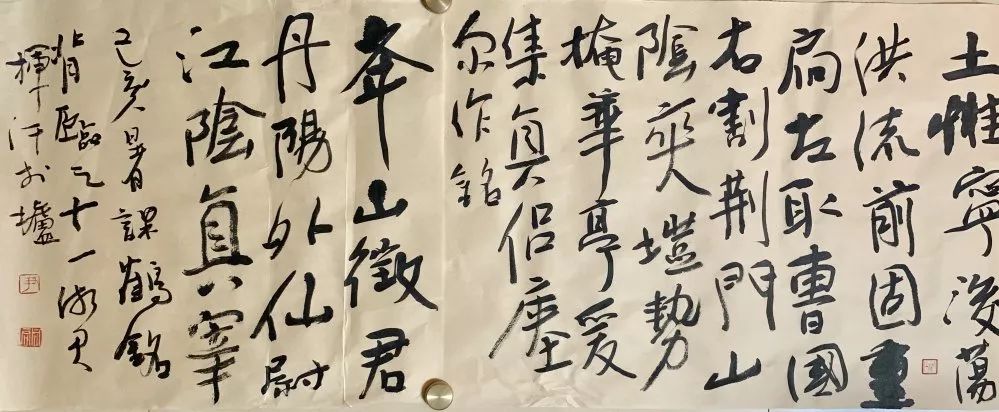 土惟寧後蕩
洪流前固重
扃左取曹國
右割荊門山
陰爽塏勢
掩華亭爰
集真侶瘞
尔作銘
夅山徵君
丹陽外仙尉
江陰真宰
己亥暑課鶴銘
背臨之十一
揮汗於